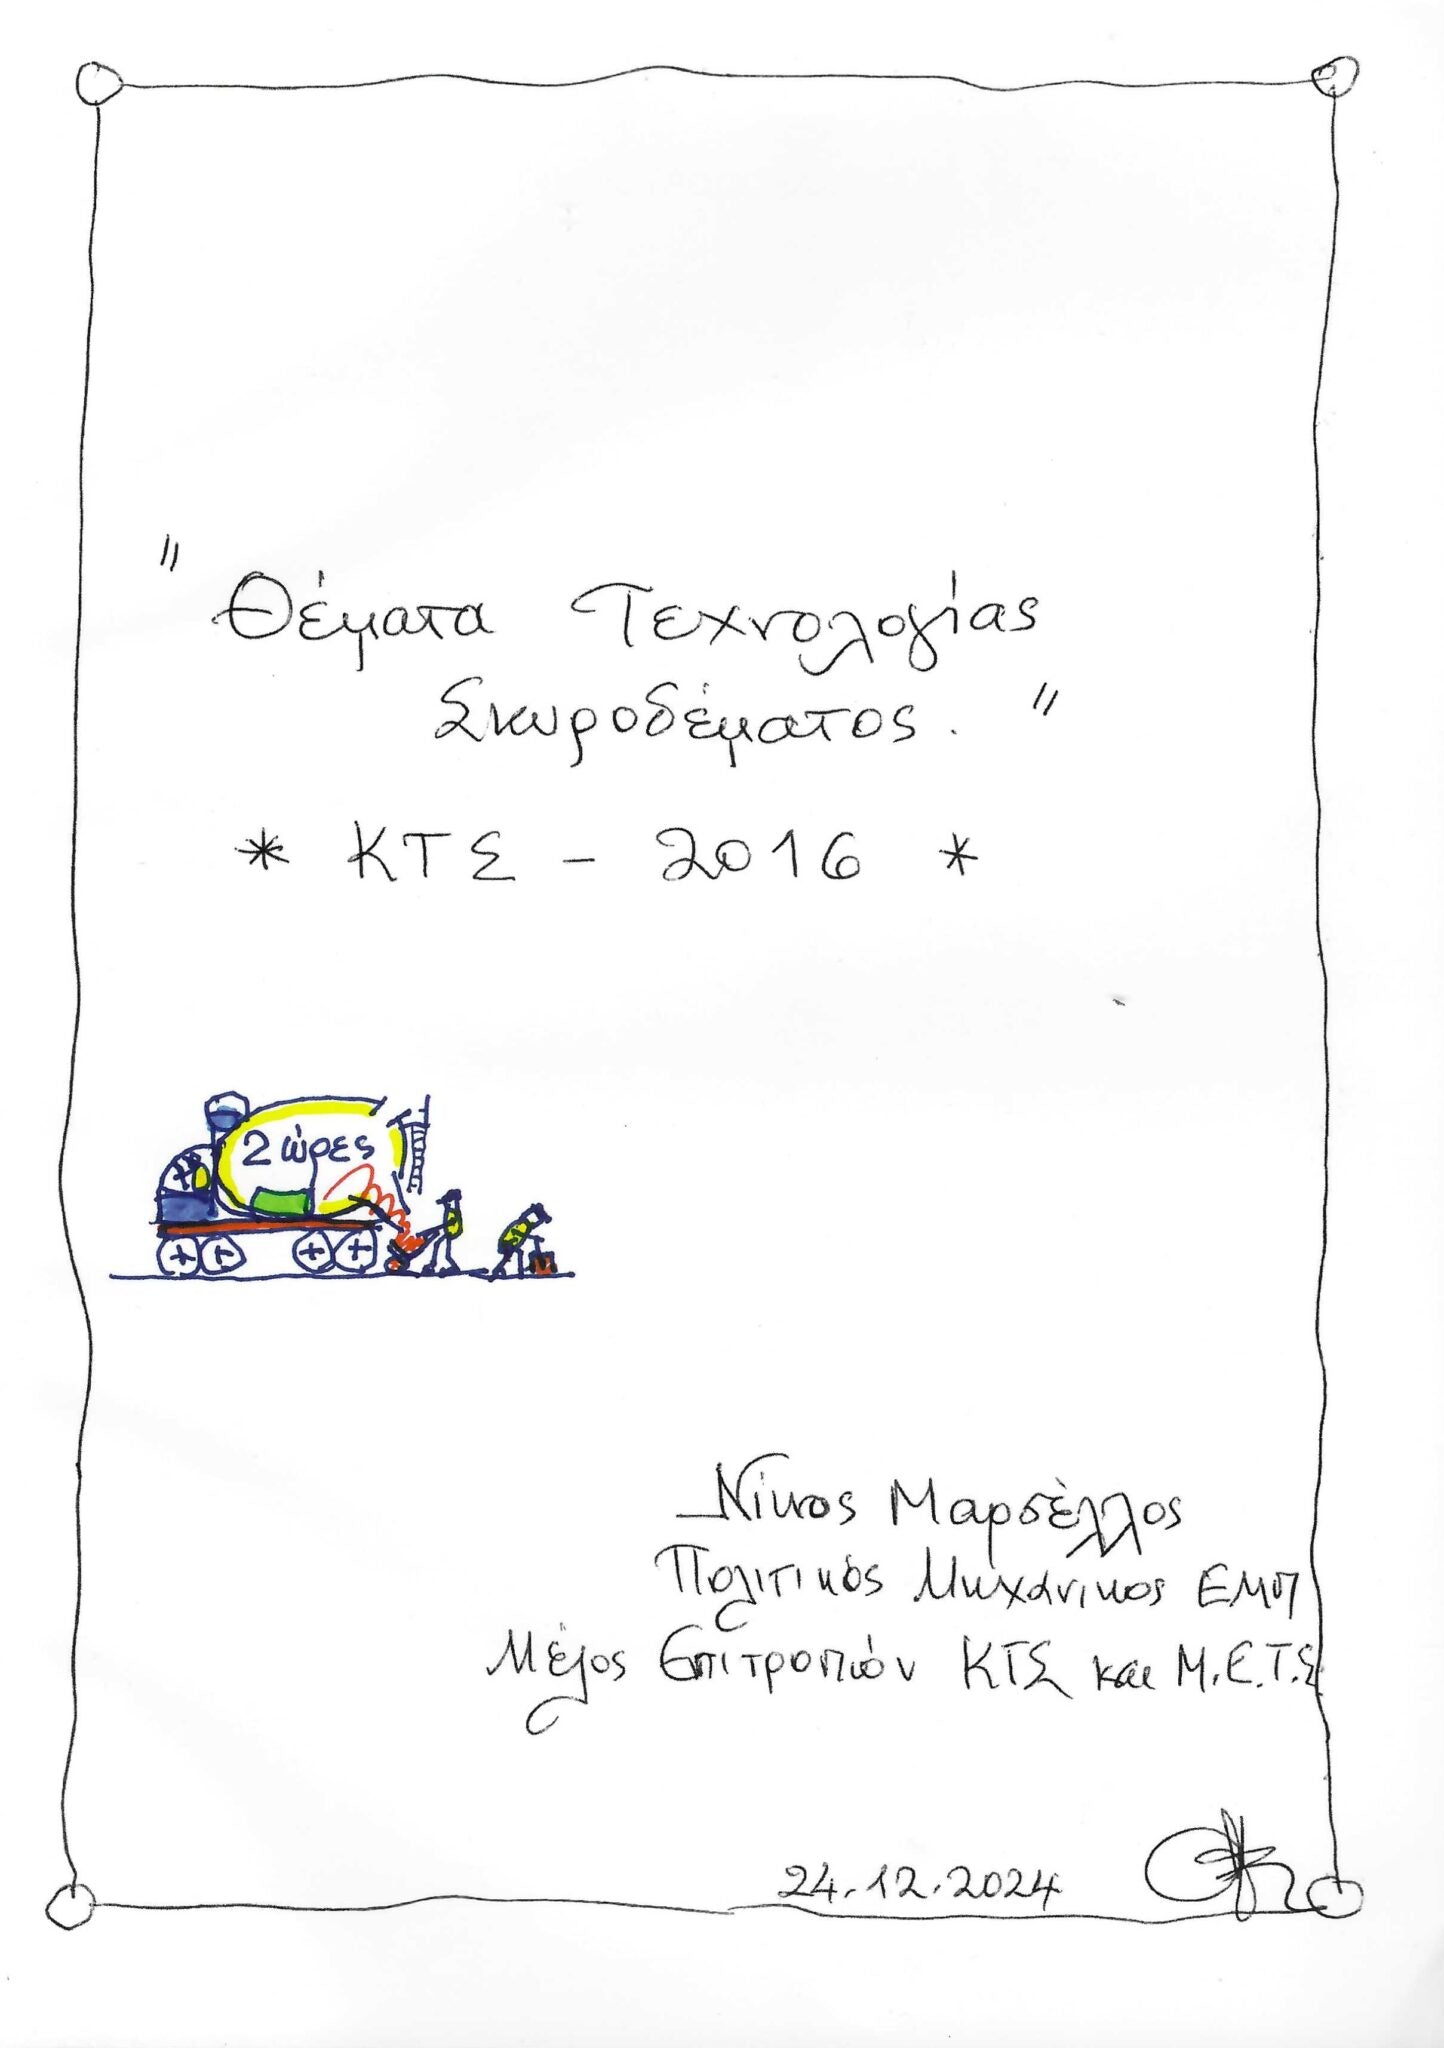 " Θέματα Τεχνολογίας
Σκυροδέματος. "
* ΚΤΣ - 2016 *
2 ώρες
Νίκος Μαρσέλλος
Πολιτικός Μηχανικος ΕΜΠ
Μέλος Επιτροπών ΚΤΣ και Μ.Ε.Τ.Σ
24.12.2024